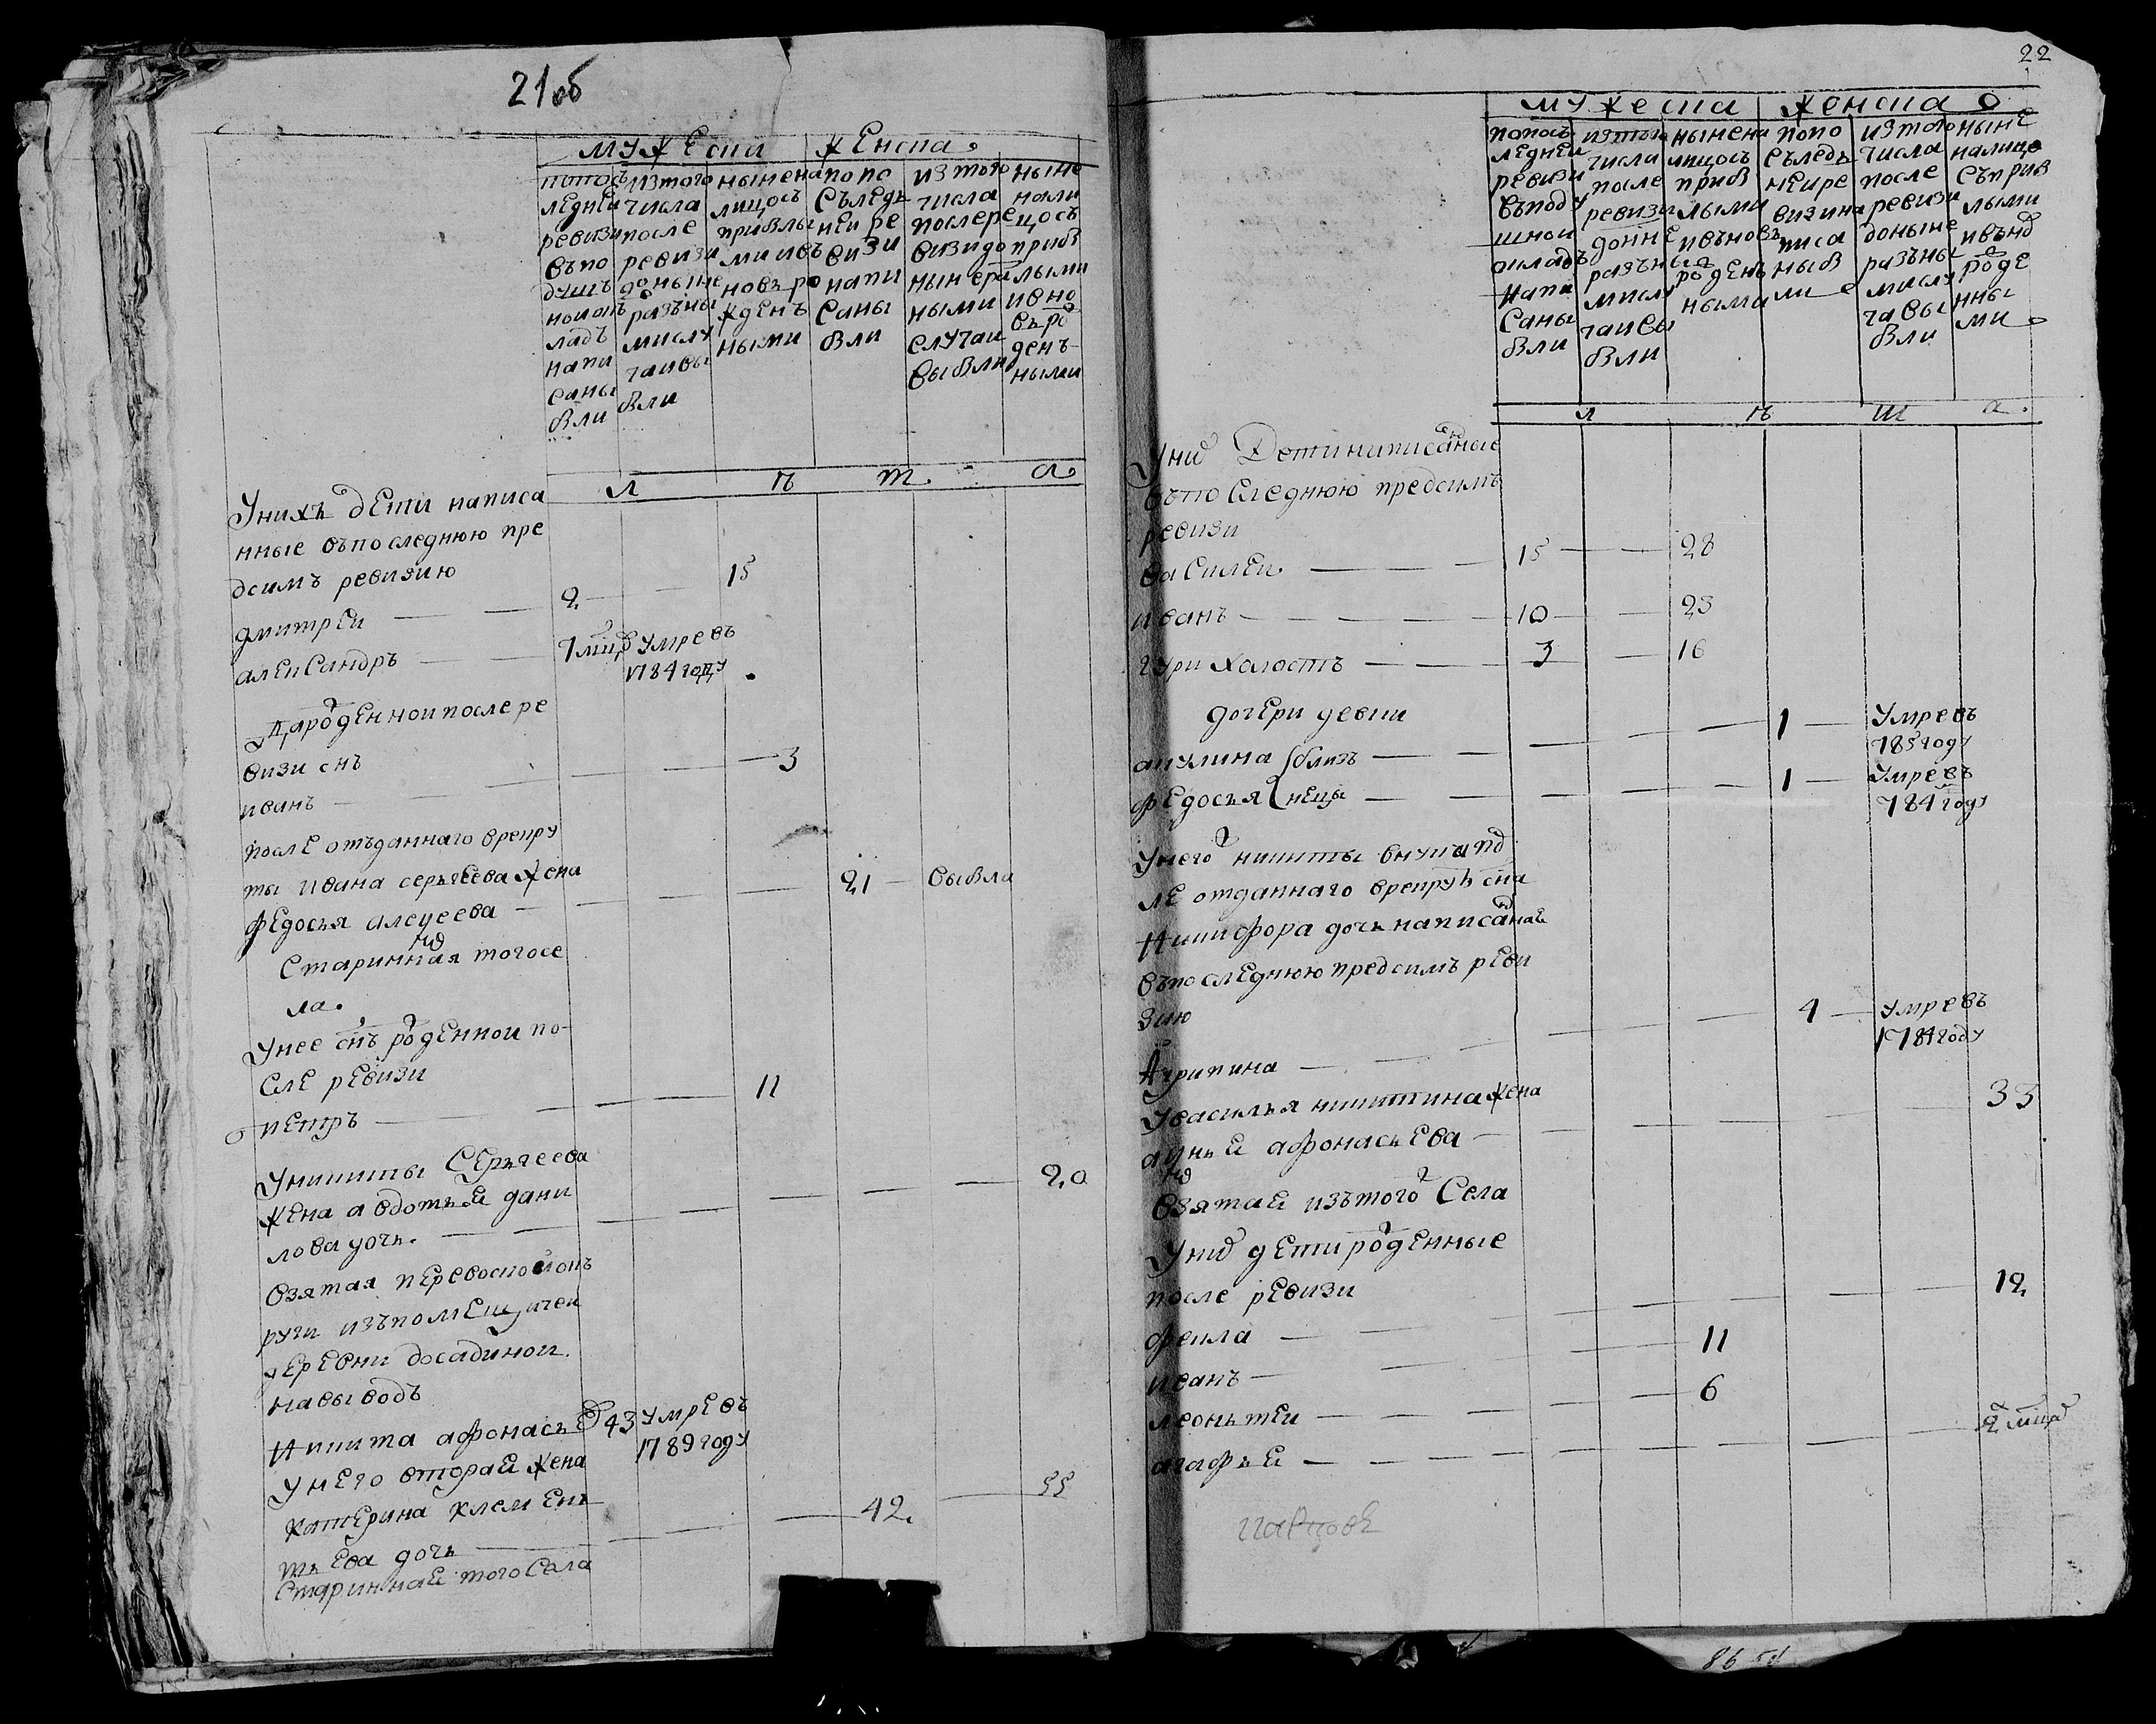 21об
мужеска женска
попос
леднеи
ревизи
въпо
душъ
номокъ
ладъ
напи
саны
были
изтого
числа
после
ревизи
доныне
разъны
мислу
чаивы
были
нынена
лицосъ
прибылы
миивъ
новъро
жденъ
ными
попо
съледъ
неире
визи
напи
саны
были
изтого
числа
послере
визидо
нынера
ными
случаи
выбыли
ныне
нали
цосъ
прибы
лыми
ивно
въро
денъ
ными
л ѣ т а
Унихъ дети написа
нные въпоследнюю пре
дсимъ ревизию
дмитреи 2 15
александръ 7 миц умревъ
1784 году
ивизи снъ
иванъ 3
после отъданнаго врекру
ты ивана серьгеева жена
федосья алеѯеева 21 выбыла
Стариннная тогосе
ла.
Унее снъ роденнои по-
сле ревизи
петръ 11
Уникиты Серьгеева
жена авдотья дани
лова дочь. 20
Взятая первоспо
руги изъпомещичеи
деревни досадинои
навыводъ
Никита афонасьевъ 43 умревъ
1789 году
Унего вторая жена
катерина клемен
тьева дочь 42 55
Стариннная того Села
22
мужеска женска
попось
леднеи
ревизи
въподу
шнои
окладъ
напи
саны
были
изтого
числа
после
ревизи
донне
разъны
мислу
чаивы
были
нынена
лицось
приб
лыми
ивъновъ
роденъ
ными
попо
съледъ
неире
визина
писа
ныб
ли
изтого
числа
после
ревизи
доныне
разъны
мислу
чавы
были
ныне
налицо
съприб
лыми
ивънов
роде
нны
ми
л ѣ т а
Уних Детинаписанные
въпоследнюю предсимъ
ревизи
василеи 15 28
иванъ 10 23
гури холостъ 3 16
дочери девки
акулина близъ 1 Умревъ
785 году
федосья нецы 1 Умревъ
784 году
Унего никиты внука по
ле отданнаго врекруты сна
Никифора дочь написанная
въпоследнюю предсимъ реви
зию
Агрипина 4 умревъ
1784 году
Увасилья никитина жена
афонасьева 33
Взятая изътого Села
Уних дети роденные
после ревизи
фекла 12
иванъ 11
леонътеи 6
агафья миц
86